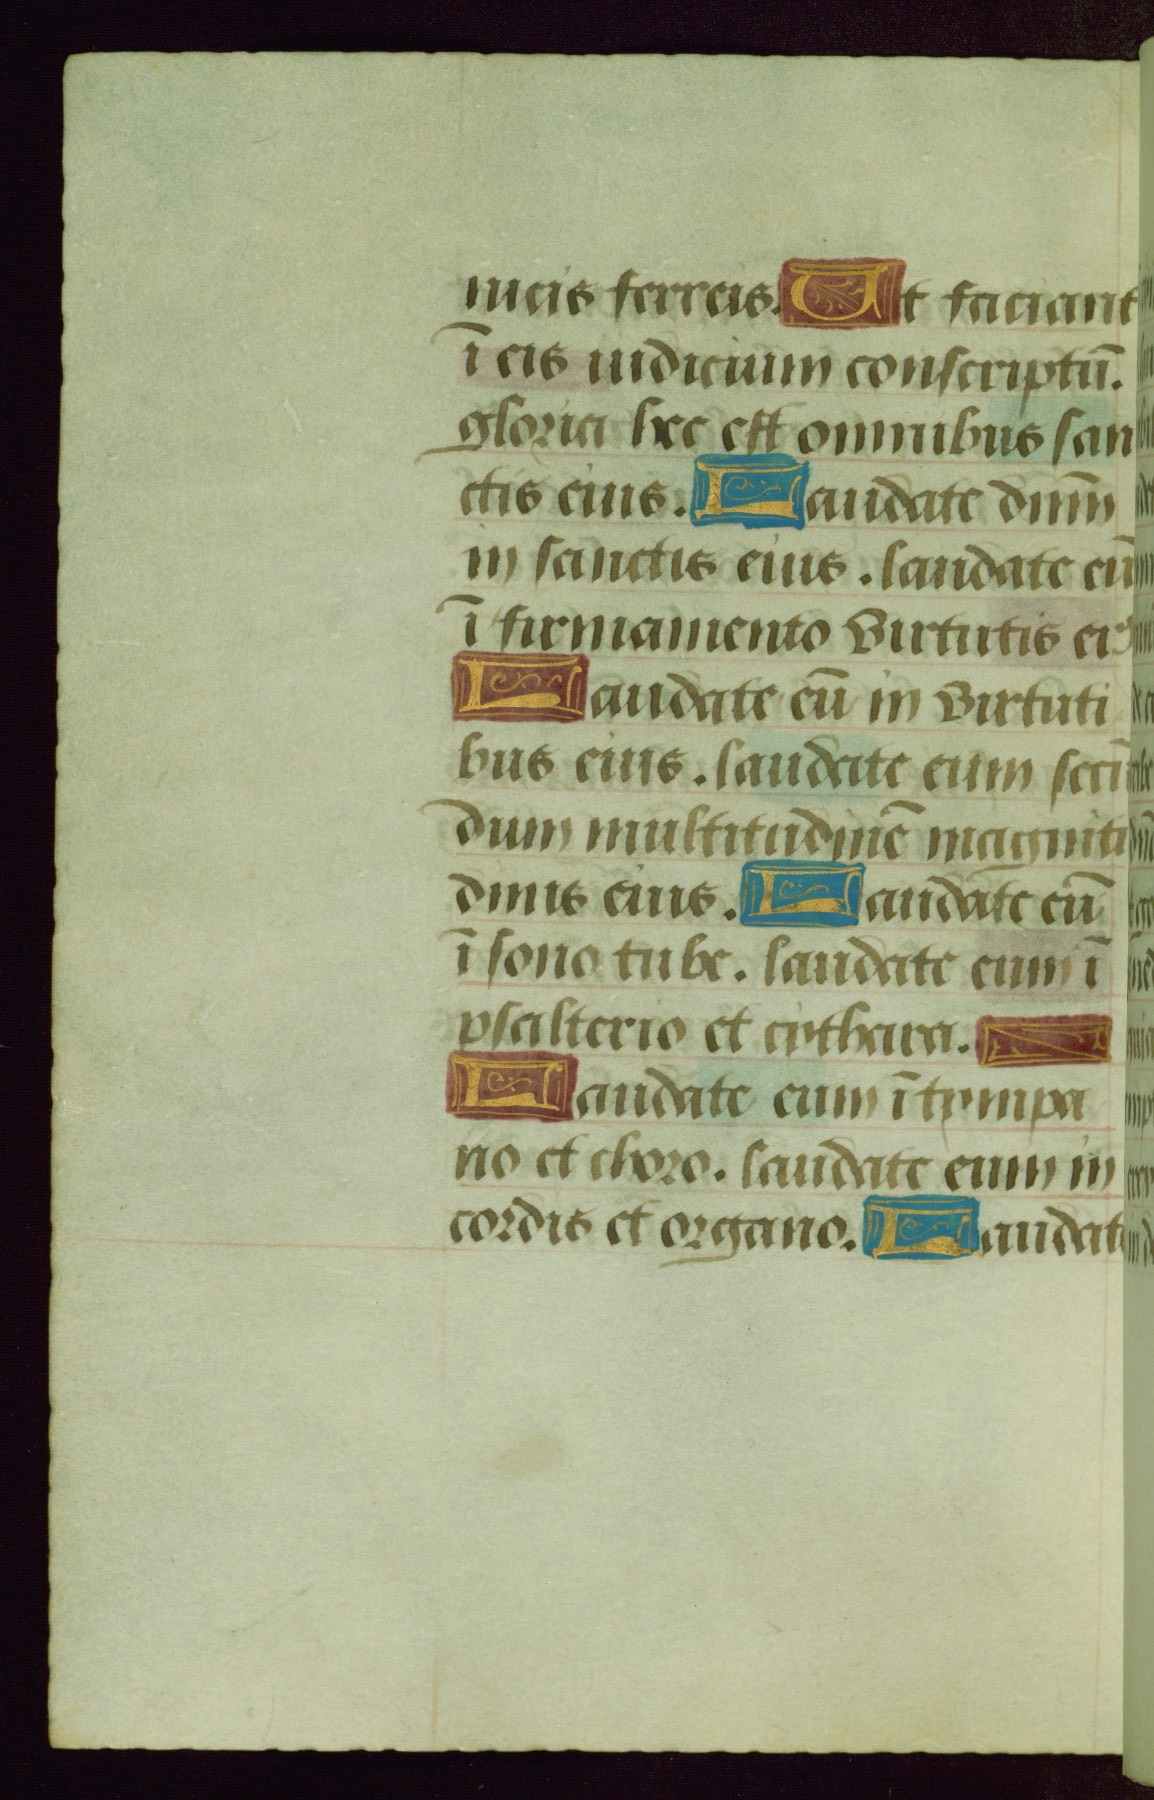 nicis ferreis. Ut faciant
ī eis iudicium conscriptū.
gloria hec est omnibus san
ctis eius. Laudate dnm̄
in sanctis eius. laudate eū
ī firmamento virtutis ei9
Laudate eū in virtuti
bus eius. laudate eum secū
dum multitudinē magnitu
dinis eius. Laudate eū
ī sono tube. laudate eum ī
psalterio et cythara.
Laudate eum ī tympa
no et choro. laudate eum in
cordis et organo. Laudate